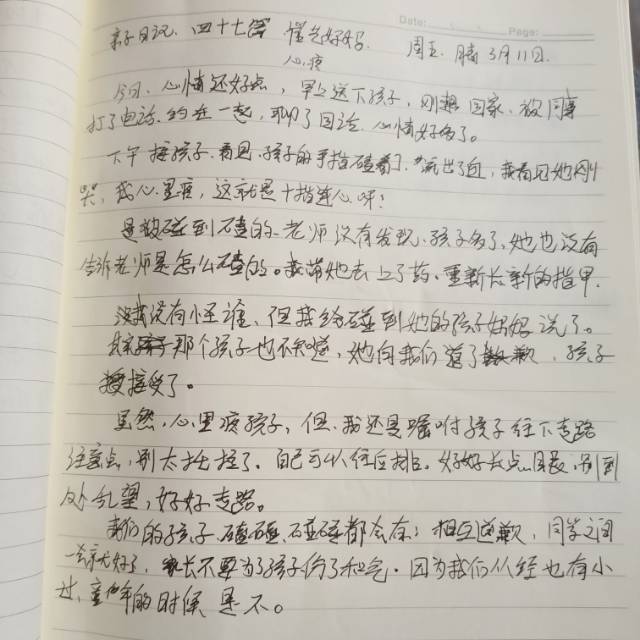 Date: Page:
亲子日记、四十七 懂是好妈 周五 晴 3月11日.
心疼
今日、心情还好点，早上送下孩子，刚想回家、被同事
打了电话、约在一起，聊了回话，心情好多了。
下午接孩子、看见孩子的手指磕着了、流出了血，我看见她刚
哭，我心里疼，这就是十指连心呀！
是被碰到磕的、老师没有发现、孩子多了、她也没有
告诉老师是怎么磕的。我带她去上了药、重新长新的指甲.
我没有小怪谁、但我给碰到她的孩子妈妈说了。
那个孩子也不知道，她向我们道了歉，孩子
接受了。
虽然，心里疼孩子，但、我还是嘱咐孩子往下走路
注意点，别太拉了、自己可以往后排、好好长点眼，别到
处乱望，好好走路。
我们的孩子、磕磕、碰碰都会有；相互道歉，同学之间
一会就好了，家长不要为了孩子伤了和气。因为我们从经也有小
过、童年的时候是不。